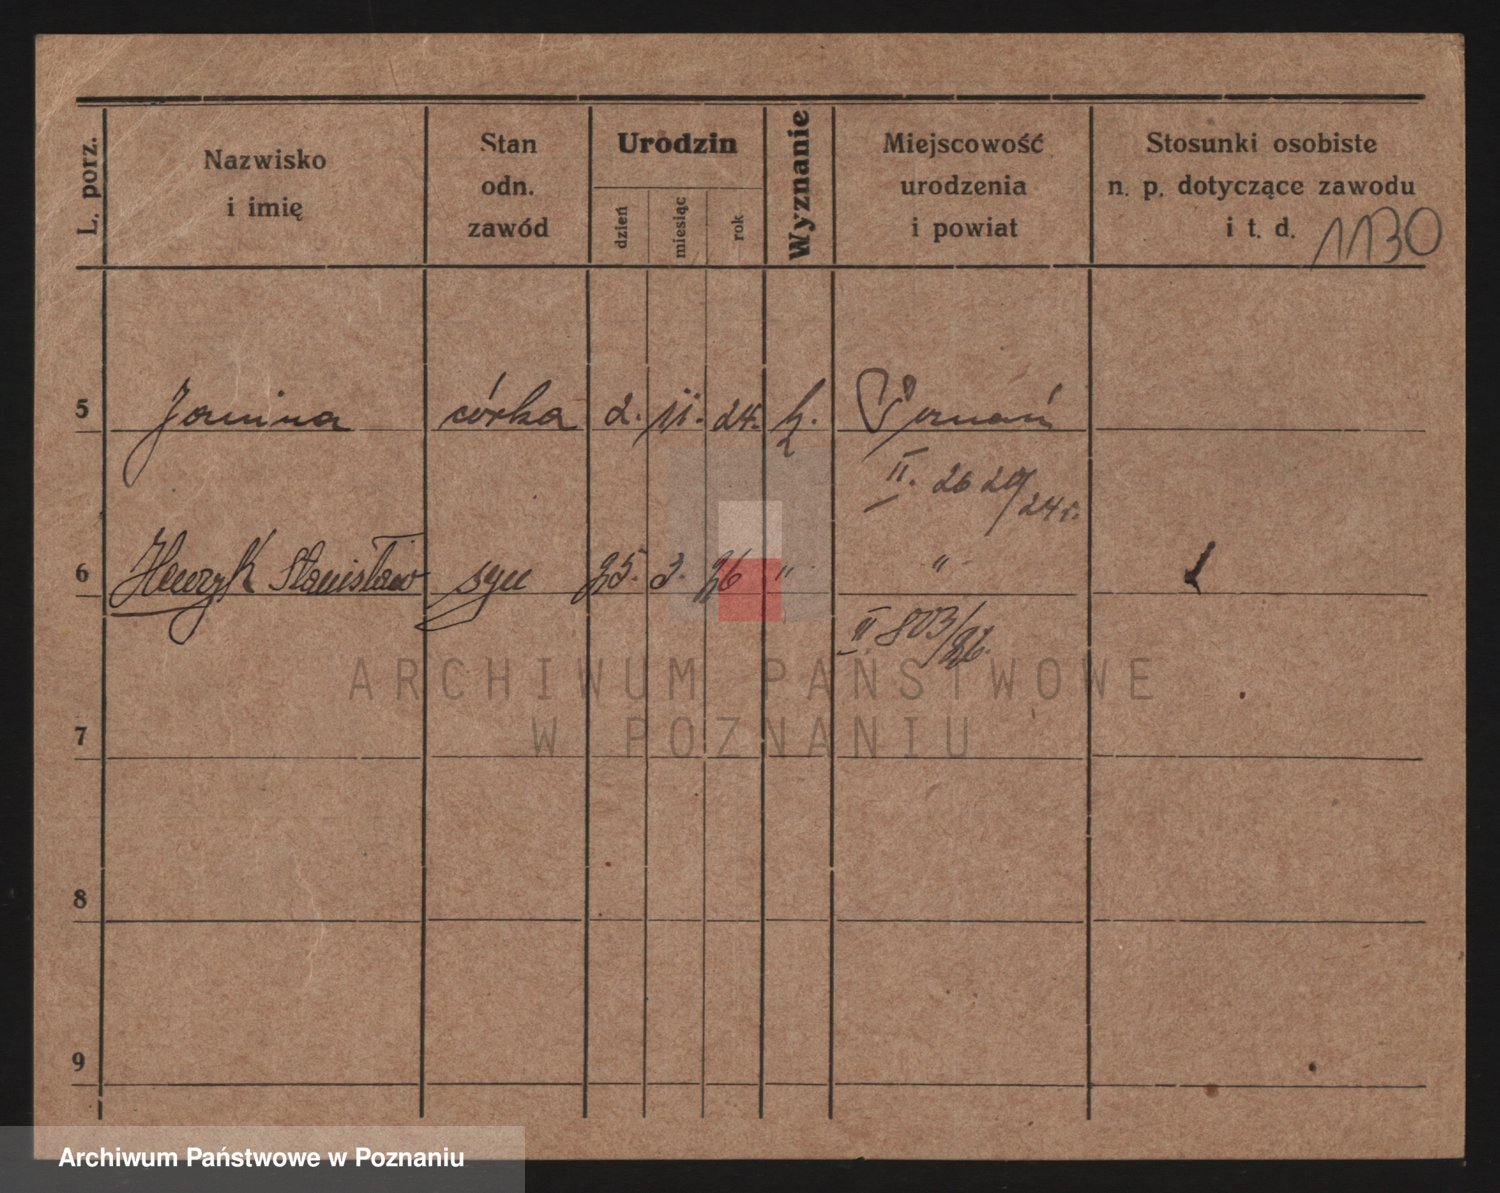 L. porz.
Nazwisko
i imię
Stan
odn.
zawód
Urodzin
dzień
miesiąc
rok
Wyznanie
Miejscowość
urodzenia
i powiat
Stosunki osobiste
n. p. dotyczące zawodu
i t. d.
1130
5 Janina córka 2. 11. 24. k. Poznań
II. 26 29/24 r.
6 Henryk Stanisław syn 25. 3. 26 " "
II 803/26.
7
8
9
ARCHIWUM PAŃSTWOWE
W POZNANIU
Archiwum Państwowe w Poznaniu